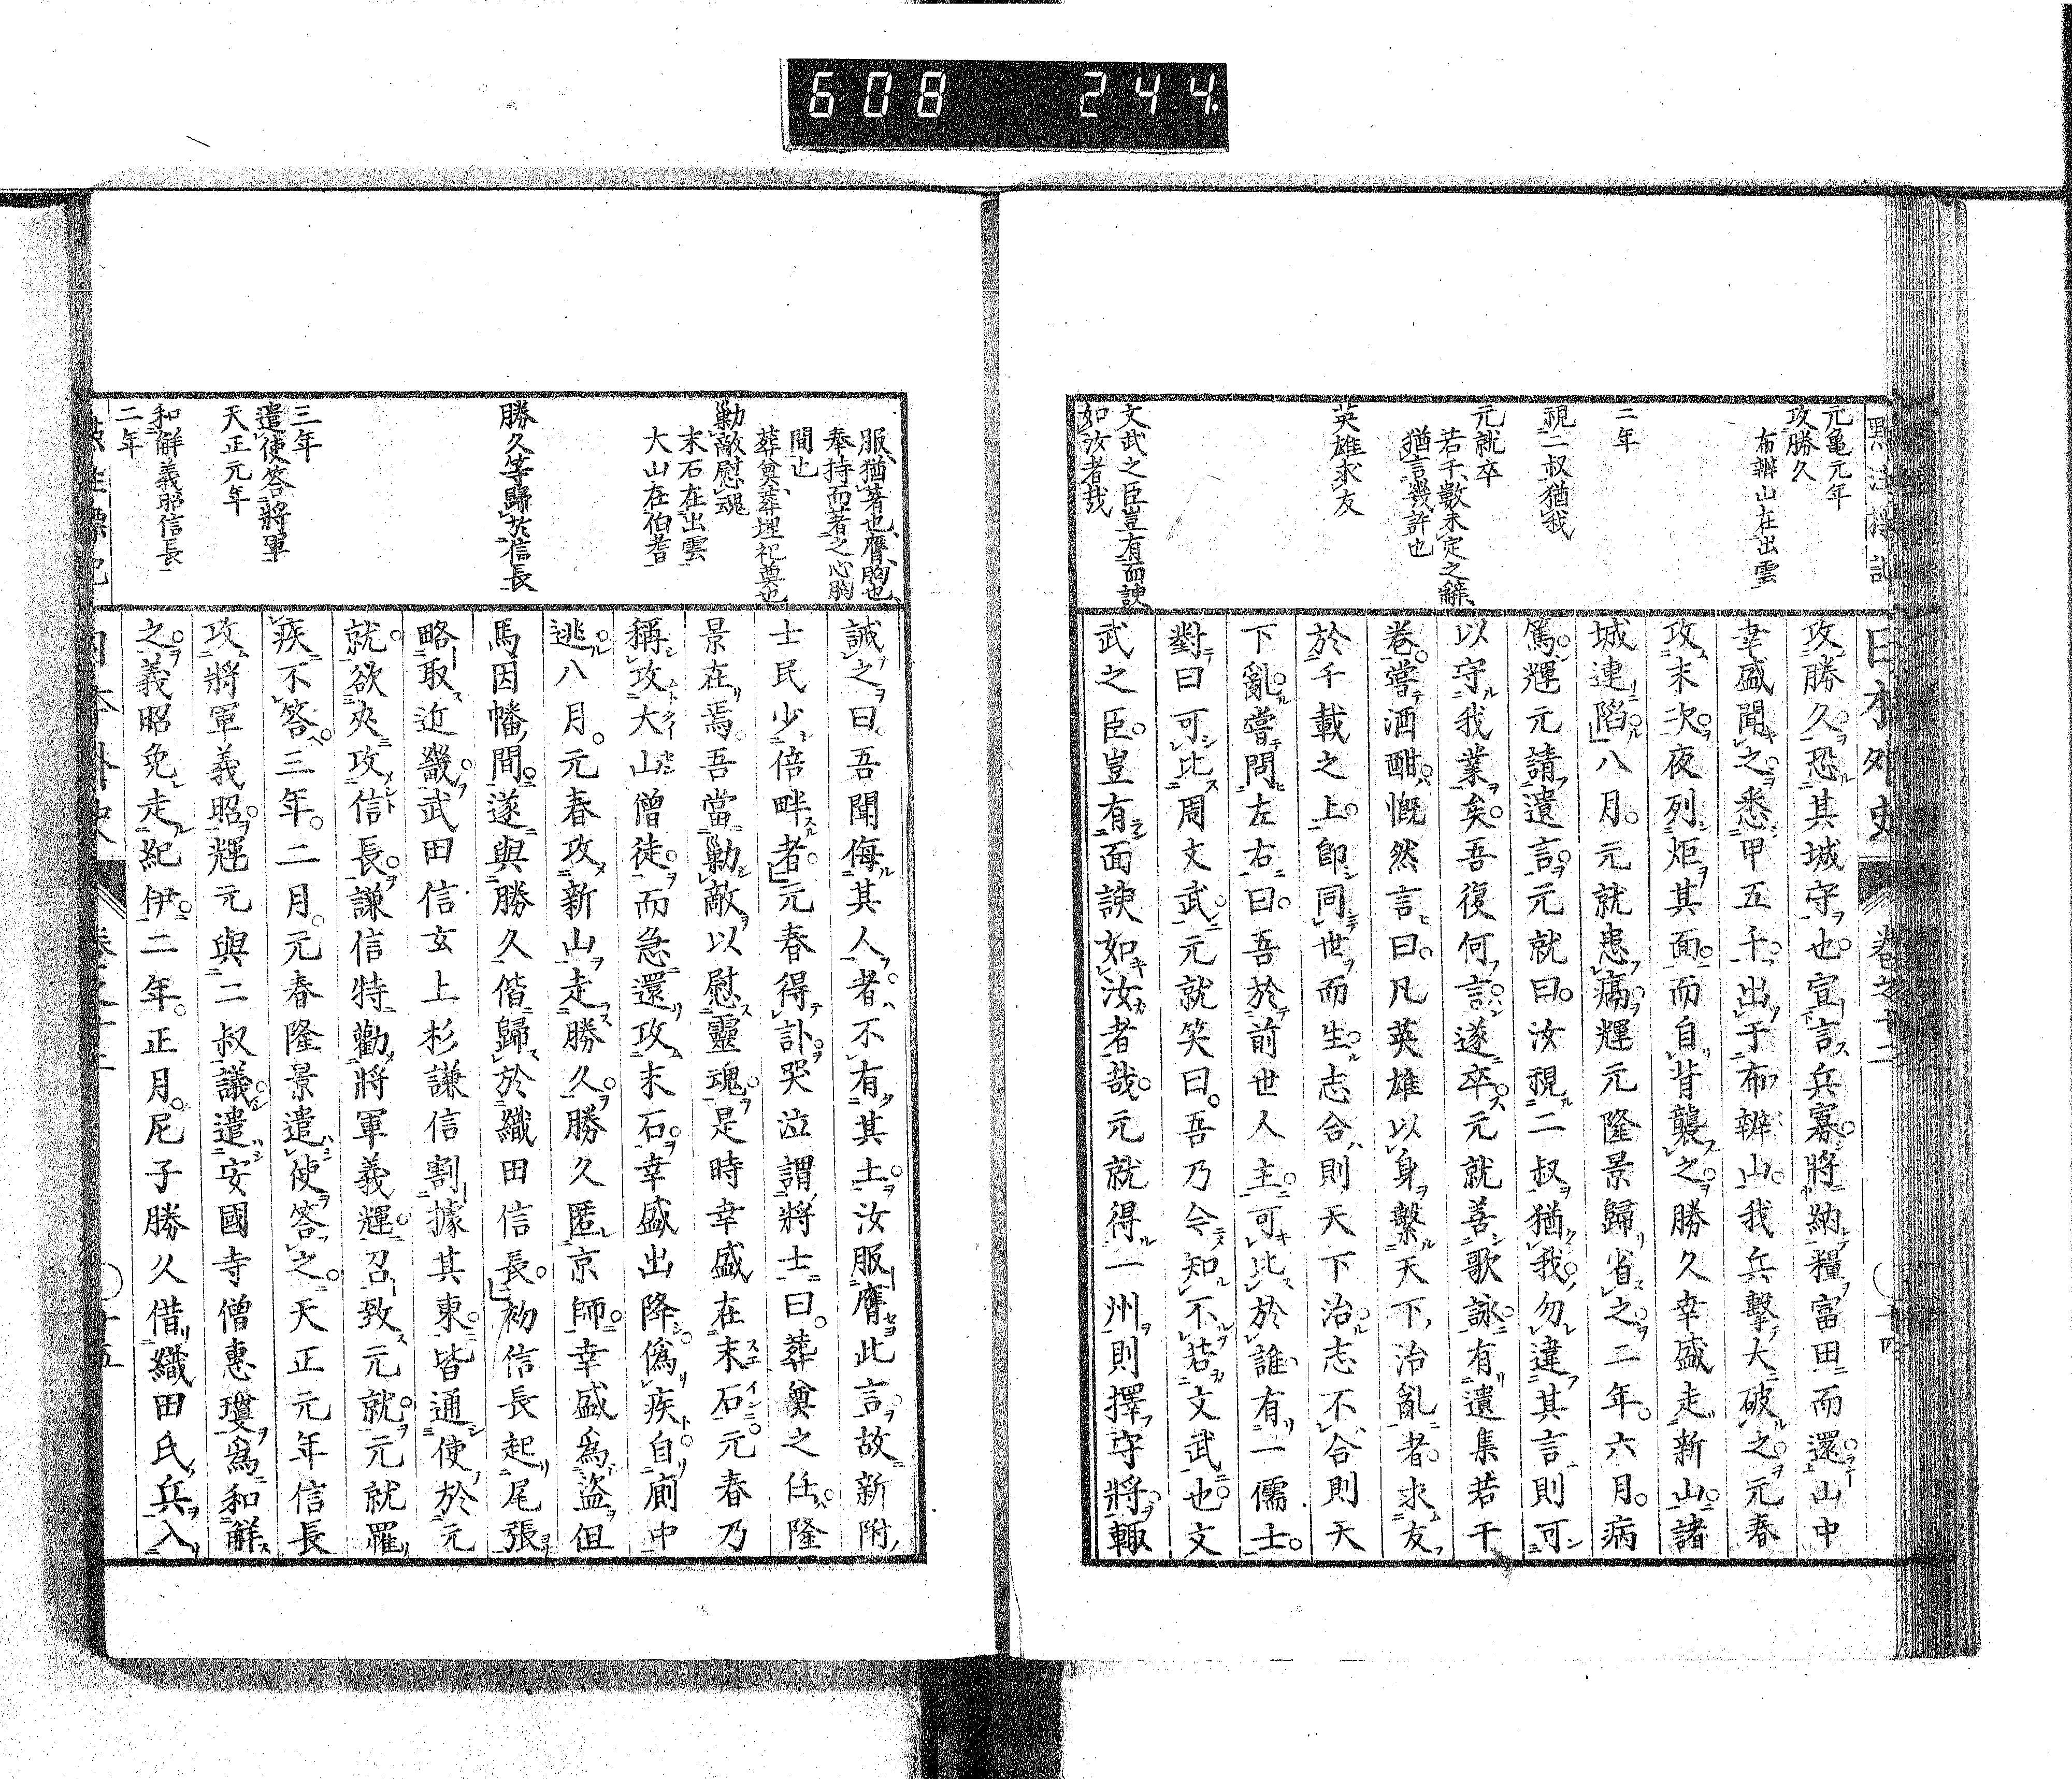 608 244.
元亀元年
攻勝久
布辦山在出雲
二年
視二叔猶我
元就卒
若干數未定之辭
猶言幾許也
英雄求友
文武之臣豈有面諛
如汝者哉
日本外史 卷之十二
攻勝久恐其城守也宣言兵寡將納糧富田而還山中
幸盛聞之悉甲五千出于布辦山我兵擊大破之元春
攻末次夜列炬其面而自背襲之勝久幸盛走新山諸
城連陷八月元就患癘輝元隆景歸省之二年六月病
篤輝元請遺言元就曰汝視二叔猶我勿違其言則可
以守我業矣吾復何言遂卒元就善歌詠有遺集若干
卷嘗酒酣慨然言曰凡英雄以身繫天下治亂者求友
於千載之上卽同世而生志合則天下治志不合則天
下亂嘗問左右曰吾於前世人主可比於誰有一儒士
對曰可比周文武元就笑曰吾乃今知不若文武也文
武之臣豈有面諛如汝者哉元就得一州則擇守將輙
服猶著也膺胸也
奉持而著之心胸
間也
葬奠葬埋祀奠也
勦敵慰魂
末石在出雲
大山在伯耆
勝久等歸於信長
三年
遣使答將軍
天正元年
和解義昭信長
二年
誡之曰吾聞侮其人者不有其土汝服膺此言故新附
士民少倍畔者元春得訃哭泣謂將士曰葬奠之任隆
景在焉吾當勦敵以慰靈魂是時幸盛在末石元春乃
稱攻大山僧徒而急還攻末石幸盛出降僞疾自廁中
逃八月元春攻新山走勝久勝久匿京師幸盛爲盜但
馬因幡間遂與勝久偕歸於織田信長初信長起尾張
略取近畿武田信玄上杉謙信割據其東皆通使於元
就欲夾攻信長謙信特勸將軍義輝召致元就元就罹
疾不答三年二月元春隆景遣使答之天正元年信長
攻將軍義昭輝元與二叔議遣安國寺僧惠瓊爲和解
之義昭免走紀伊二年正月尼子勝久借織田氏兵入